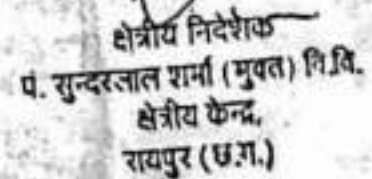 क्षेत्रीय निदेशक
पं. सुन्दरलाल शर्मा (मुक्त) वि.वि.
क्षेत्रीय केन्द्र,
रायपुर (छ.ग.)